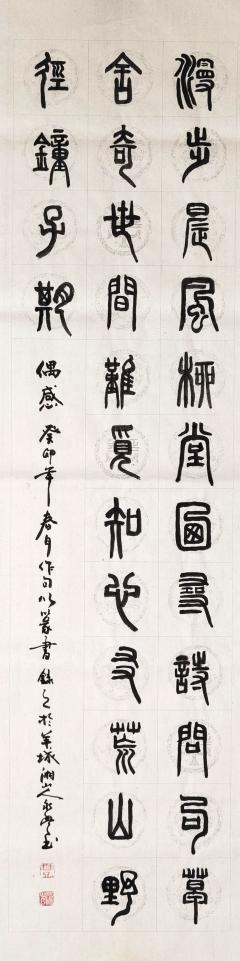 漫步晨風柳堂圖尋詩問句草
舍奇世間難覓知心友荒山野
徑鐘子期
偶感癸卯年春月作句以篆書錄之於羊城湘人